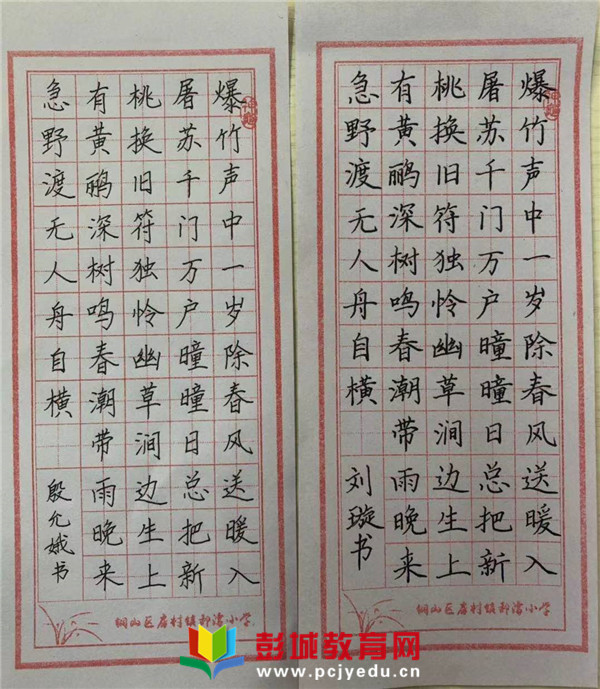 爆竹声中一岁除春风送暖入
屠苏千门万户曈曈日总把新
桃换旧符独怜幽草涧边生上
有黄鹂深树鸣春潮带雨晚来
急野渡无人舟自横
殷允娥书
铜山区房村镇小学
爆竹声中一岁除春风送暖入
屠苏千门万户曈曈日总把新
桃换旧符独怜幽草涧边生上
有黄鹂深树鸣春潮带雨晚来
急野渡无人舟自横
刘璇书
铜山区房村镇小学
彭城教育网
www.pcjyedu.cn